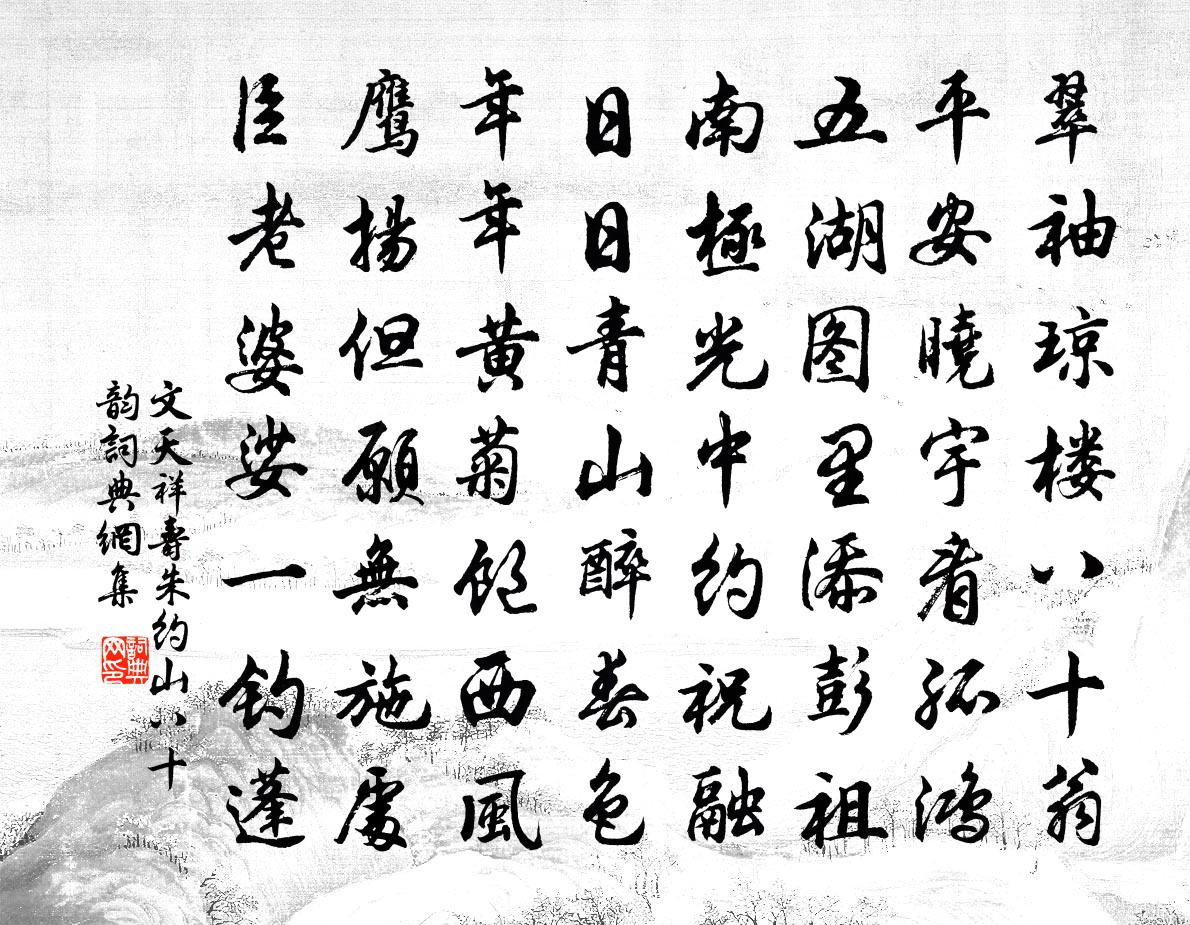 翠袖琼楼八十翁
平安晓宇看孤鸿
五湖图里添彭祖
南極光中约祝融
日日青山醉春色
年年黄菊饱西風
鹰揚但願無施處
臣老婆娑一钓蓬
文天祥壽朱约山八十
韵詞典網集
詞典
网印